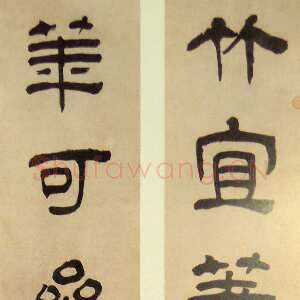 竹宜
華可
Shufawang.CN